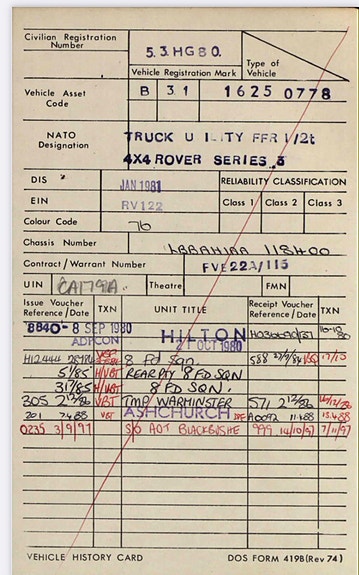 Civilian Registration Number
53HG80.
Vehicle Registration Mark
Type of Vehicle
Vehicle Asset Code
B 31 1625 0778
NATO Designation
TRUCK U ILITY FFR 1/2t
4X4 ROVER SERIES 3
DIS
JAN 1981
RELIABILITY CLASSIFICATION
EIN
RV122
Class 1 Class 2 Class 3
Colour Code
76
Chassis Number
118400
Contract/Warrant Number
FVE 22A/115
UIN CA1791A Theatre FMN
Issue Voucher Reference/Date TXN UNIT TITLE Receipt Voucher Reference/Date TXN
8840-8 SEP 1980 HILTON
ADPCON 2 OCT 1980
8 Fd Sqn. 588 27/9/84 17/10
5/85 H/VBT REAR PTY 8 FD SQN
31/85 H/VBT 8 FD SQN.
305 2/12/86 VBT TMP WARMINSTER 571 2/12/86 16/12/86
201 2488 VBT ASHCHURCH A0092 11488 15488
0235 3/9/97 S/O AOT BLACKBUSHE 999 14/10/97 7/11/97
VEHICLE HISTORY CARD DOS FORM 419B (Rev 74)